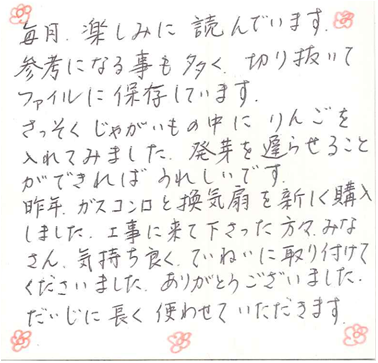 毎月、楽しみに読んでいます。
参考になる事も多く、切り抜いて
ファイルに保存しています。
さっそくじゃがいもの中にりんごを
入れてみました。発芽を遅らせること
ができればうれしいです。
昨年、ガスコンロと換気扇を新しく購入
しました。工事に来て下さった方々、みな
さん、気持ち良く、ていねいに取り付けて
くださいました。ありがとうございました。
だいじに長く使わせていただきます。